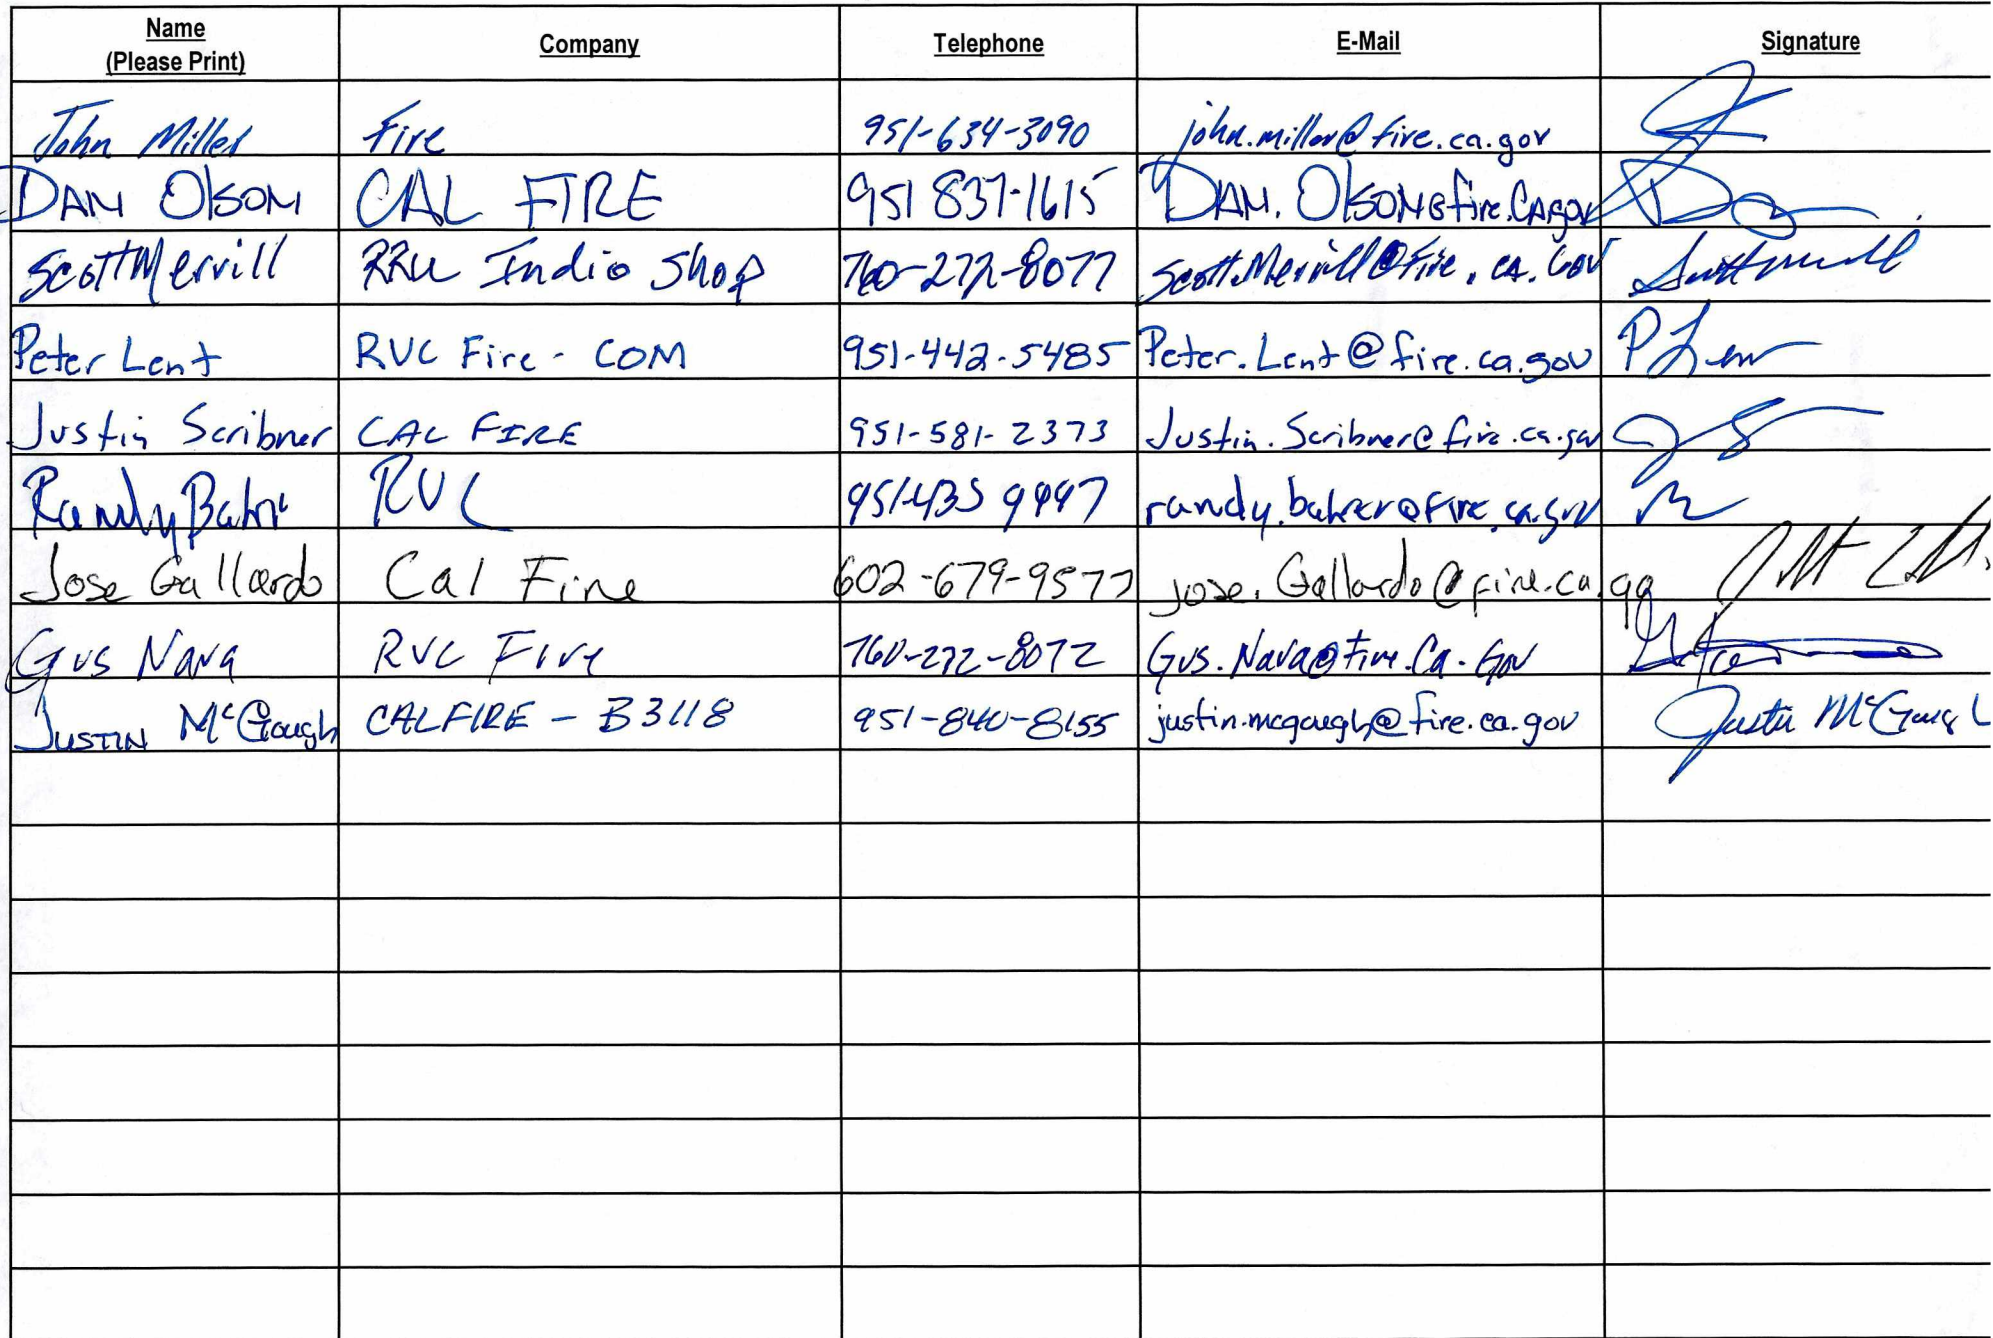 Name (Please Print) Company Telephone E-Mail Signature
John Miller Fire 951-634-3090 john.miller@fire.ca.gov
DAN OlSON CAL FIRE 951 837-1615 DAN.OlSON@fire.CA.gov
Scott Merrill RRU Indio Shop 760-272-8077 Scott.Merrill@Fire.ca.Gov
Peter Lent RVC Fire - COM 951-442-5485 Peter.Lent@fire.ca.gov P Len
Justin Scribner CAL FIRE 951-581-2373 Justin.Scribner@fire.ca.gov
Randy RVC randy.
Jose Gallardo Cal Fire 602-679-9577 jose.Gallardo@fire.ca.go
Gus Nava RVC Fire 760-272-8072 Gus.Nava@Fire.Ca.Gov
JUSTIN McGough CALFIRE - B3118 951-840-8155 justin.mcgough@fire.ca.gov Justin McGough